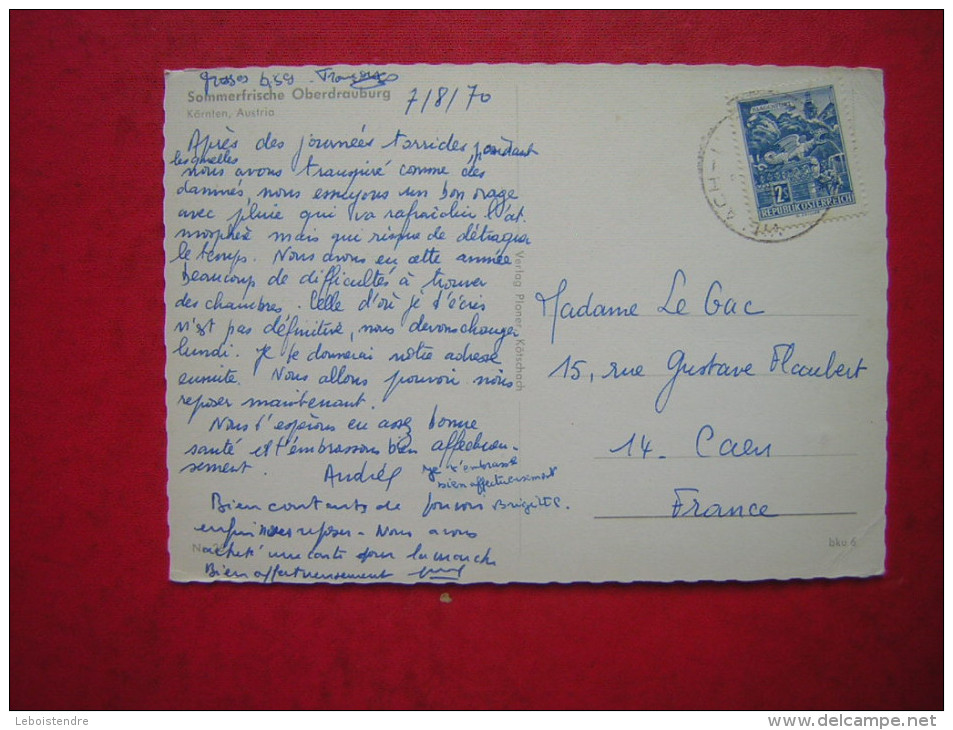 grosses bises. Françoise
Sommerfrische Oberdrauburg
Kärnten, Austria
7/8/70
Après des journées torrides pendant
lesquelles
nous avons transpiré comme des
damnés, nous essuyons un bon orage
avec pluie qui va rafraîchir l'at-
mosphère mais qui risque de détraquer
le temps. Nous avons eu cette année
beaucoup de difficultés à trouver
des chambres. Celle d'où je t'écris
n'est pas définitive, nous devons changer
lundi. Je te donnerai notre adresse
ensuite. Nous allons pouvoir nous
reposer maintenant.
Nous t'espérons en assez bonne
santé et t'embrassons bien affectueu-
sement.
André
Je t'embrasse
bien affectueusement
Brigitte.
Bien contents de pouvoir
enfin nous reposer - Nous avons
acheté une carte pour la marche
Bien affectueusement
No
Verlag Ploner, Kötschach
REPUBLIK ÖSTERREICH
2s
ACH-
Madame Le Gac
15, rue Gustave Flaubert
14 - Caen
France
bku 6
Leboistendre
www.delcampe.net